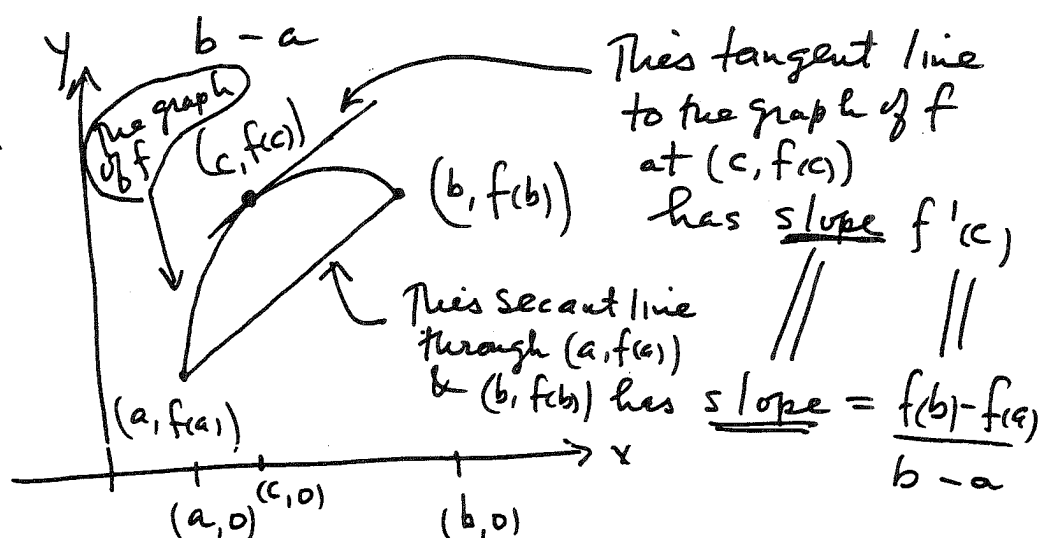 b - a
y
The graph
of f
(c, f(c))
(b, f(b))
This tangent line
to the graph of f
at (c, f(c))
has slope f'(c)
This secant line
through (a, f(a))
& (b, f(b)) has slope = f(b)-f(a)
b - a
(a, f(a))
x
(a, 0)
(c, 0)
(b, 0)